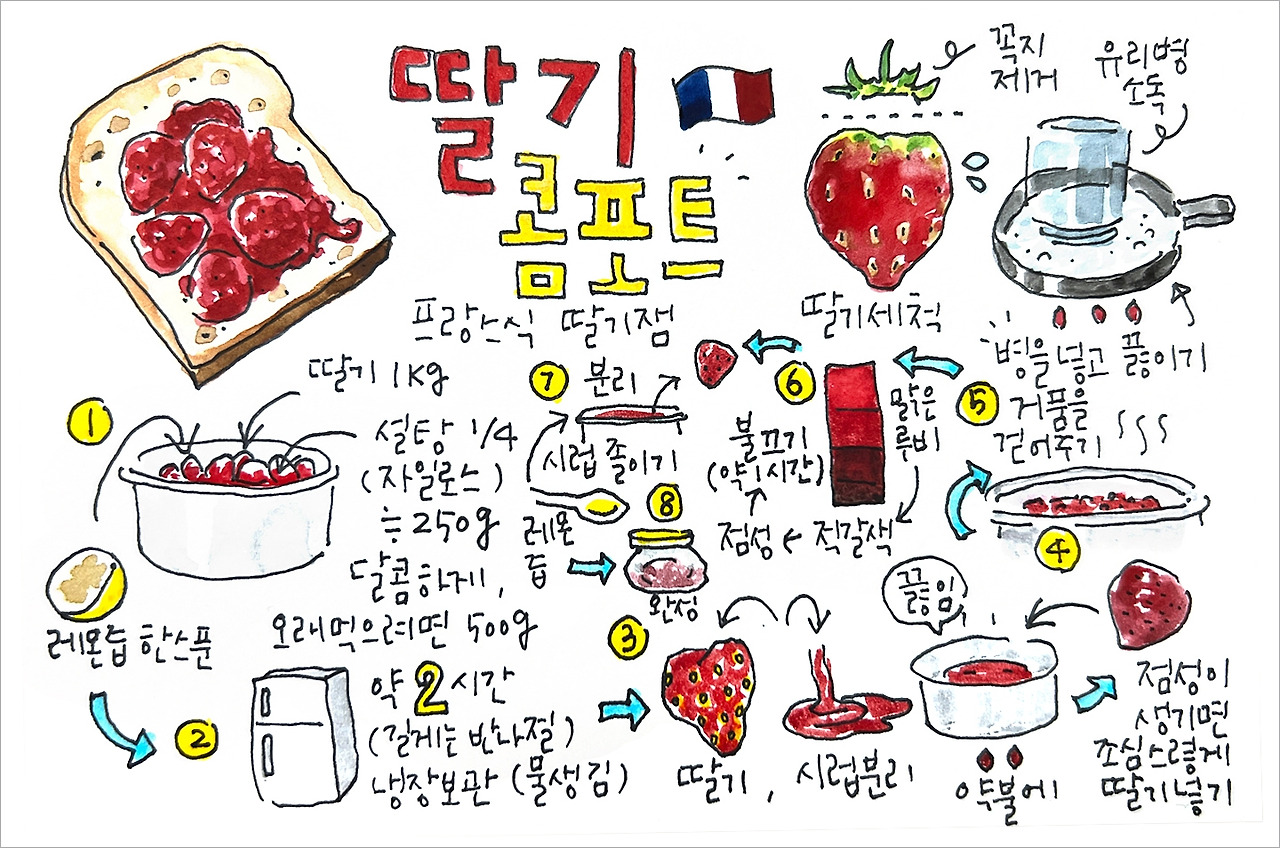 딸기
콤포트
프랑스식 딸기잼
꼭지
제거
유리병
소독
딸기세척
병을 넣고 끓이기
1
딸기 1kg
설탕 1/4
(자일로스)
≒250g
달콤하게,
오래먹으려면 500g
레몬즙 한스푼
2
약 2시간
(길게는 반나절)
냉장보관 (물생김)
3
딸기, 시럽분리
끓임
약불에
점성이
생기면
조심스럽게
딸기넣기
4
5
거품을
걷어주기
맑은
루비
적갈색
점성
6
불끄기
(약1시간)
7
분리
시럽 졸이기
레몬
즙
8
완성